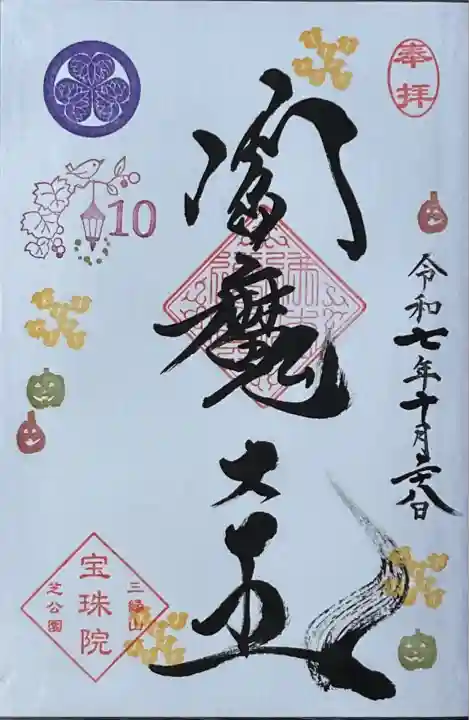 奉拝
閻魔大王
令和七年十月二八日
10
三縁山
宝珠院
芝公園